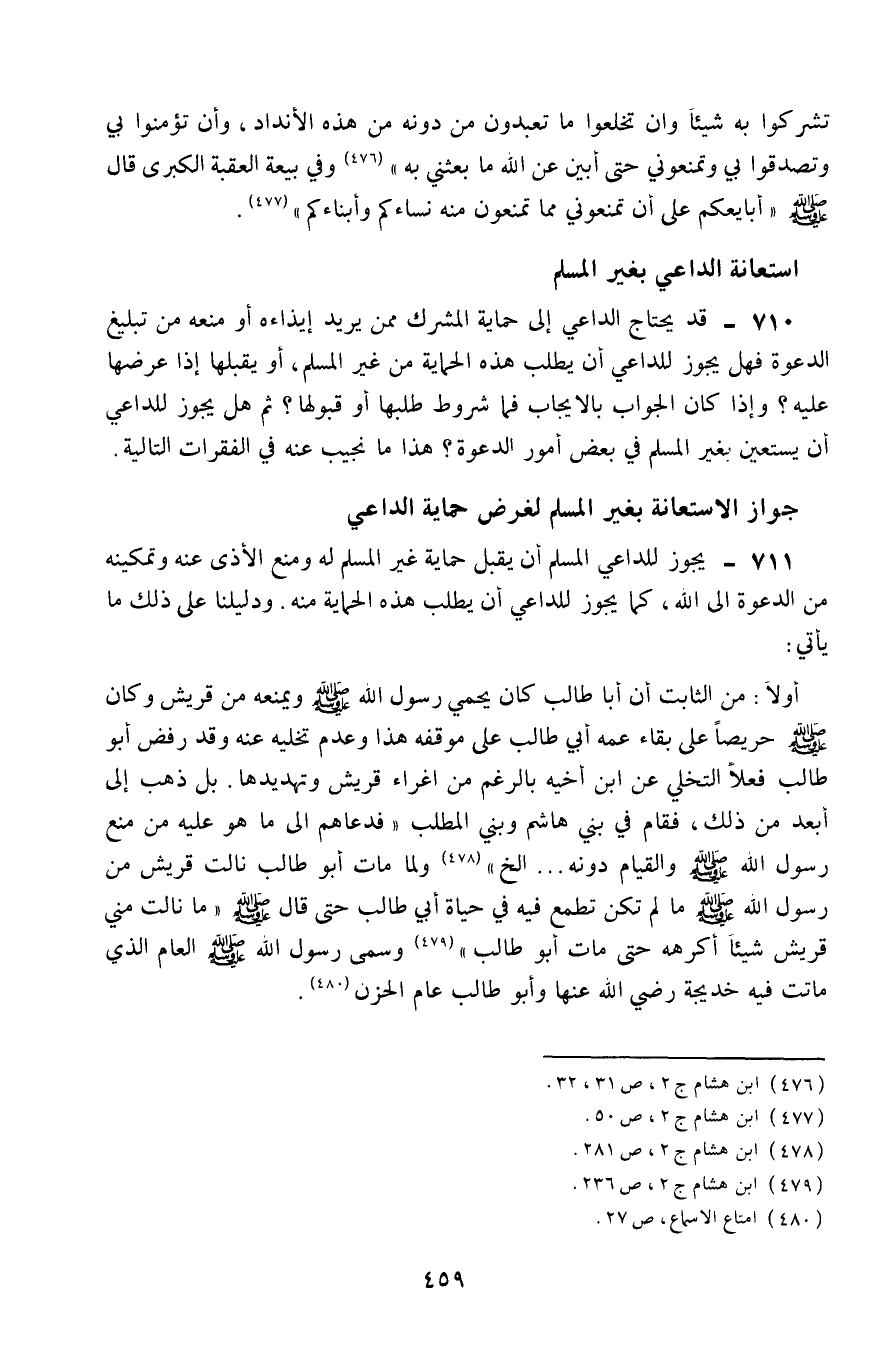 تشركوا به شيئاً وان تخلعوا ما تعبدون من دونه من هذه الأنداد ، وأن تؤمنوا بي
وتصدقوا بي وتمنعوني حتى أبين عن الله ما بعثني به » (٤٧٦) وفي بيعة العقبة الكبرى قال
ﷺ « أبايعكم على أن تمنعوني مما تمنعون منه نساءكم وأبناءكم » (٤٧٧) .
استعانة الداعي بغير المسلم
٧١٠ - قد يحتاج الداعي إلى حماية المشرك ممن يريد إيذاءه أو منعه من تبليغ
الدعوة فهل يجوز للداعي أن يطلب هذه الحماية من غير المسلم ، أو يقبلها إذا عرضها
عليه ؟ وإذا كان الجواب بالايجاب فما شروط طلبها أو قبولها ؟ ثم هل يجوز للداعي
أن يستعين بغير المسلم في بعض أمور الدعوة ؟ هذا ما نجيب عنه في الفقرات التالية .
جواز الاستعانة بغير المسلم لغرض حماية الداعي
٧١١ - يجوز للداعي المسلم أن يقبل حماية غير المسلم له ومنع الأذى عنه وتمكينه
من الدعوة الى الله ، كما يجوز للداعي أن يطلب هذه الحماية منه . ودليلنا على ذلك ما
يأتي :
أولاً : من الثابت أن أبا طالب كان يحمي رسول الله ﷺ ويمنعه من قريش وكان
ﷺ حريصاً على بقاء عمه أبي طالب على موقفه هذا وعدم تخليه عنه وقد رفض أبو
طالب فعلاً التخلي عن ابن أخيه بالرغم من اغراء قريش وتهديدها . بل ذهب إلى
أبعد من ذلك ، فقام في بني هاشم وبني المطلب « فدعاهم الى ما هو عليه من منع
رسول الله ﷺ والقيام دونه ... الخ » (٤٧٨) ولما مات أبو طالب نالت قريش من
رسول الله ﷺ ما لم تكن تطمع فيه في حياة أبي طالب حتى قال ﷺ « ما نالت مني
قريش شيئاً أكرهه حتى مات أبو طالب » (٤٧٩) وسمى رسول الله ﷺ العام الذي
ماتت فيه خديجة رضي الله عنها وأبو طالب عام الحزن (٤٨٠) .
(٤٧٦) ابن هشام ج ٢ ، ص ٣١ ، ٣٢ .
(٤٧٧) ابن هشام ج ٢ ، ص ٥٠ .
(٤٧٨) ابن هشام ج ٢ ، ص ٢٨١ .
(٤٧٩) ابن هشام ج ٢ ، ص ٢٣٦ .
(٤٨٠) امتاع الاسماع ، ص ٢٧ .
٤٥٩